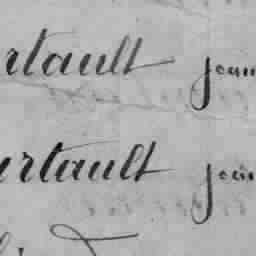 rtault jean
urtault jean